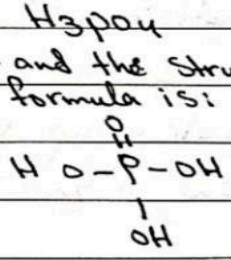 H3PO4
and the stru
formula is:
O
H O-P-OH
OH